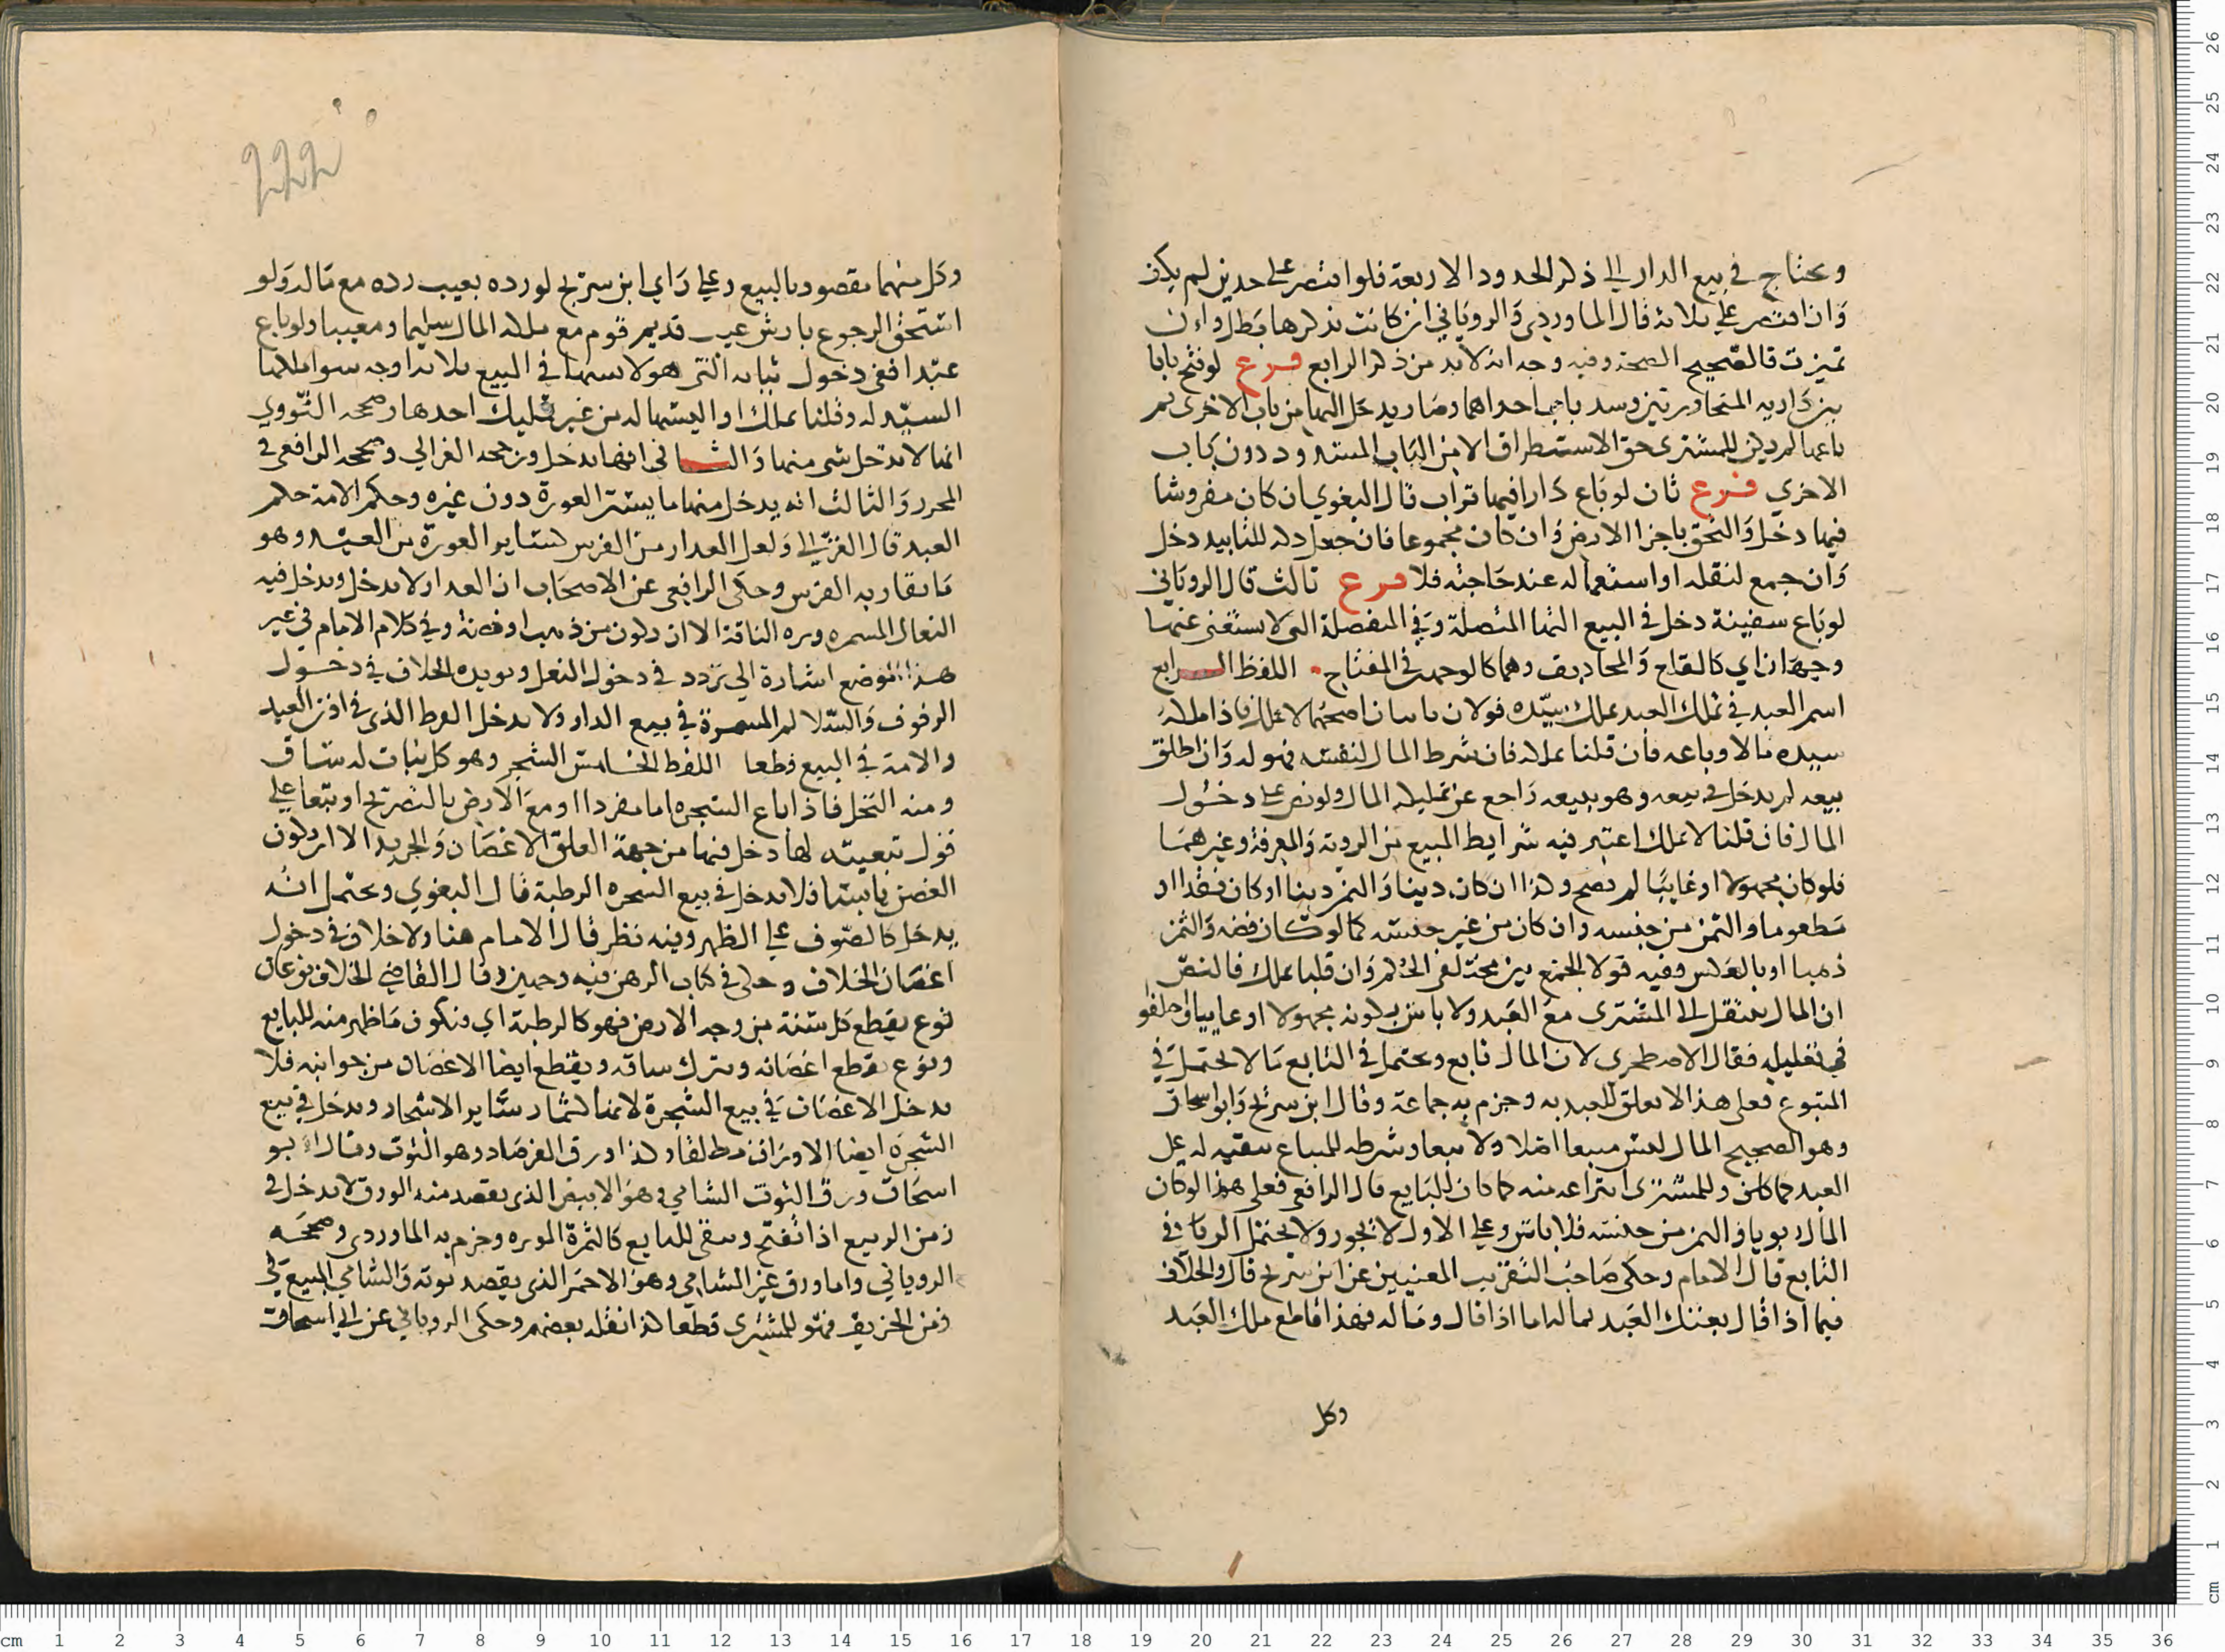 ويحتاج في بيع الدار الى ذكر الحدود الاربعة فلو اقتصر على حدين لم يكف
وان اقتصر على ثلاثة قال الماوردي والروياني ان كانت بذكرها بطل وان
تميزت فالصحيح الصحة وفيه وجه انه لا بد من ذكر الرابع فرع لو فتح بابا
بين داريه المتجاورتين وسد باب احداهما وصار يدخل اليها من باب الاخرى ثم
باعها لم يكن للمشترى حق الاستطراق الا من الباب المسدود دون باب
الاخرى فرع ثان لو باع دارا فيها تراب قال البغوي ان كان مفروشا
فيها دخل والتحق باجزا الارض وان كان مجموعا فان جعل ذلك للتابيد دخل
وان جمع لنقله او استعماله عند حاجته فلا فرع ثالث قال الروياني
لو باع سفينة دخل في البيع التها المتصلة وفي المنفصلة التي لا يستغنى عنها
وجهان اي كالقلع والمجاديف وهما كالوجهين في المفتاح اللفظ الرابع
اسم العبد في تملك العبد بتمليك سيده قولان ياتيان اصحهما لا يملك فاذا ملكه
سيده مالا وباعه فان قلنا يملك فان شرط المال لنفسه فهو له وان اطلق
بيعه لم يدخل في بيعه وهو ببيعه راجع عن تمليكه المال ولو نص على دخول
المال فان قلنا لا يملك اعتبر فيه شرايط المبيع من الروية والمعرفة وغيرهما
فلو كان مجهولا او غايبا لم يصح وكذا ان كان دينا والثمن دينا او كان نقدا او
مطعوما والثمن من جنسه وان كان من غير جنسه كما لو كان فضة والثمن
ذهبا او بالعكس وفيه قولا الجمع بين مختلفي الحكم وان قلنا يملك فالنص
ان المال ينتقل الى المشترى مع العبد ولا باس بكونه مجهولا او غايبا واختلفوا
في تعليله فقال الاصطخرى لان المال تابع ويحتمل في التابع ما لا يحتمل في
المتبوع فعلى هذا لا يتعلق للعبد به وجزم به جماعة وقال ابن سريج وابو اسحاق
وهو الصحيح المال ليس مبيعا اصلا ولا تبعا وشرطه للمبتاع تبقيه له على
العبد كما كان وللمشترى انتزاعه منه كما كان للبايع قال الرافعي فعلى هذا لو كان
المال ربويا والثمن من جنسه فلا باس وعلى الاول لا يجوز ولا يحتمل الربا في
التابع قال الامام وحكى صاحب التقريب المعنيين عن ابن سريج قال والخلاف
فيما اذا قال بعتك العبد بماله اما اذا قال وماله فهذا قاطع ملك العبد
وكل
وكل منهما مقصود بالبيع وعلى راى ابن سريج لو رده بعيب رده مع ماله ولو
استحق الرجوع بارش عيب قديم قوم مع ملك المال سليما ومعيبا ولو باع
عبدا ففي دخول ثيابه التي هو لابسها في البيع ثلاثة اوجه سوا ملكها
السيد له وقلنا يملك او البسها له من غير تمليك احدها وصححه النووي
انها لا يدخل شى منها والثاني انها يدخل ورجحه الغزالي وصححه الرافعي في
المحرر والثالث انه يدخل منها ما يستر العورة دون غيره وحكم الامة حكم
العبد قال الغزالي ولعل العذار من الفرس كساتر العورة من العبد وهو
ما يقاد به الفرس وحكى الرافعي عن الاصحاب ان العذار لا يدخل ويدخل فيه
النعال المسمرة وبره الناقة الا ان يكون من ذهب او فضة وفي كلام الامام في غير
هذا الموضع اشارة الى تردد في دخول النعل ويويده الخلاف في دخول
الرفوف والسلالم المسمرة في بيع الدار ولا يدخل القرط الذي في اذن العبد
والامة في البيع قطعا اللفظ الخامس الشجر وهو كل نبات له ساق
ومنه النخل فاذا باع الشجرة اما مفردا او مع الارض بالتصريح او تبعا على
قول تبعيته لها دخل فيها من جهة العلق الاغصان والجريد الا ان يكون
الغصن يابسا فلا يدخل في بيع الشجرة الرطبة قال البغوي ويحتمل انه
يدخل كالصوف على الظهر وفيه نظر قال الامام هنا ولا خلاف في دخول
اغصان الخلاف وحكى في كتاب الرهن فيه وجهين وقال القاضي الخلاف نوعان
نوع يقطع كل سنة من وجه الارض فهو كالرطبة اي ويكون ما ظهر منه للبايع
ونوع يقطع اغصانه ويترك ساقه ويقطع ايضا الاغصان من جوانبه فلا
يدخل الاغصان في بيع الشجرة لانها كثمار ساير الاشجار ويدخل في بيع
الشجرة ايضا الاوراق مطلقا وكذا ورق الفرصاد وهو التوت وقال ابو
اسحاق ورق التوت الشامي وهو الابيض الذي يقصد منه الورق لا يدخل في
زمن الربيع اذا تفتح ويبقى للبايع كالثمرة الموبره وجزم به الماوردي وصححه
الروياني واما ورق غير الشامي وهو الاحمر الذي يقصد توته والشامي المبيع في
زمن الخريف فهو للمشترى قطعا كذا نقله بعضهم وحكى الروياني عن ابي اسحاق